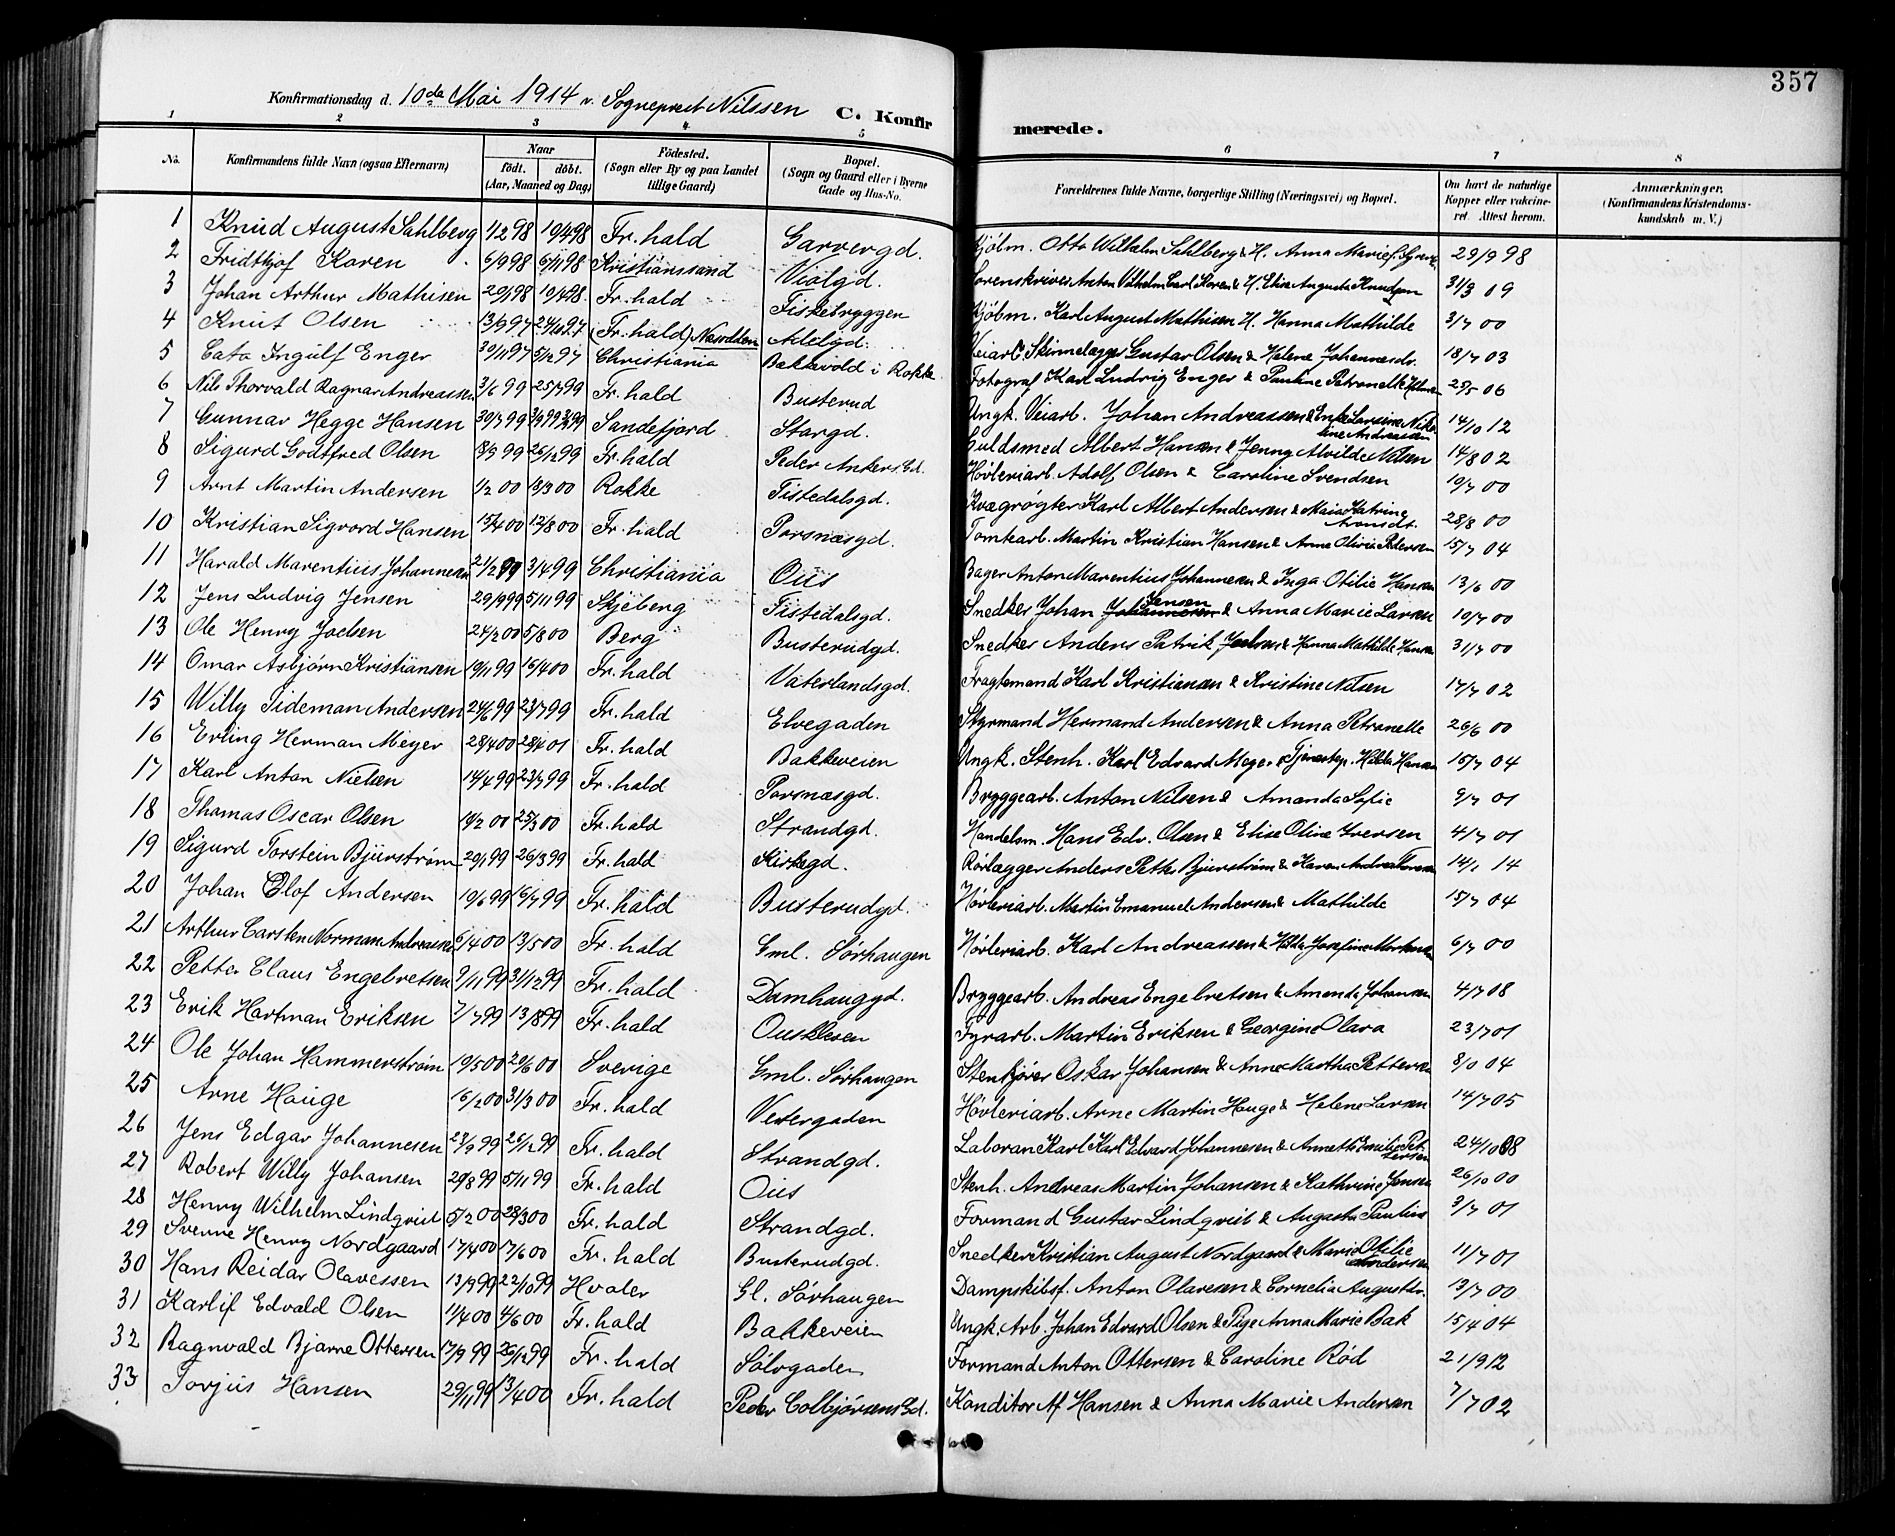 357
Konfirmationsdag d. 10de Mai 1914 v. Sogneprest Nilssen C. Konfir merede.
1 2 3 4 5 6 7 8
No. Konfirmandens fulde Navn (ogsaa Efternavn) Naar födt. döbt. (Aar, Maaned og Dag) Födested. (Sogn eller By og paa Landet tillige Gaard) Bopæl. (Sogn og Gaard eller i Byerne Gade og Hus-No. Forældrenes fulde Navne, borgerlige Stilling (Næringsvei) og Bopæl. Om havt de naturlige Kopper eller vakcineret. Attest herom. Anmærkninger. (Konfirmandens Kristendomskundskab m. V.)
1 Knud August Sahlberg 1/2 98 10/4 98 Fr.hald Garvergd. Kjøbm. Otto Wilhelm Sahlberg & H. Anna Marie 29/9 98
2 Fridthjof Koren 6/9 98 6/11 98 Kristianssand Violgd. Sorenskriver Anton Vilhelm Carl Koren & H. Elise Augusta Knudsen 31/3 09
3 Johan Arthur Mathisen 20/1 98 10/4 98 Fr.hald Fiskebryggen Kjøbm. Karl August Mathisen H. Hanna Mathilde 3/7 00
4 Knut Olsen 13/9 97 24/10 97 (Fr.hald) Næsodden Adelgd. Veiarb. Skinnelægger Gustav Olsen & Helene Johannesdr. 18/7 03
5 Cato Ingulf Enger 30/11 97 5/12 97 Christiania Bakkevold i Rokke Fotograf Karl Ludvig Enger & Pauline Petronelle 25/5 06
6 Nils Thorvald Ragnar Andreassen 3/6 99 25/7 99 Fr.hald Busterud Ungk. Veiarb. Johan Andreassen & Enke Larsine Nikoline Andreassen 14/10 12
7 Gunnar Hegge Hansen 30/7 99 3/9 99 Sandefjord Stargd. Guldsmed Albert Hansen & Jenny Alvilde Nilsen 14/8 02
8 Sigurd Godtfred Olsen 8/9 99 26/12 99 Fr.hald Peder Ankers Gd. Høvleriarb. Adolf Olsen & Caroline Svendsen 19/7 00
9 Arnt Martin Andersen 1/2 00 18/3 00 Rokke Tistedalsgd. Kvægrøgter Karl Albert Andersen & Maia Katrine Aronsdt. 28/8 00
10 Kristian Sigvord Hansen 15/4 00 12/8 00 Fr.hald Porsnæsgd. Tomtearb. Martin Kristian Hansen & Anne Olivie Pedersen 15/7 04
11 Harald Marentius Johannesen 21/2 99 3/4 99 Christiania Ous Bager Anton Marentius Johannesen & Inga Otilie Hansen 13/6 00
12 Jens Ludvig Jensen 29/9 99 5/11 99 Skjeberg Tistedalsgd. Snedker Johan Johannesen Jensen & Anna Marie Larsen 10/7 00
13 Ole Henry Joelsen 24/2 00 5/8 00 Berg Busterudgd. Snedker Anders Patrik Joelsen & Hanna Mathilde Hansen 31/7 00
14 Omar Asbjørn Kristiansen 19/11 99 16/4 00 Fr.hald Vaterlandsgd. Fragtemand Karl Kristiansen & Kristine Nilsen 17/7 02
15 Willy Tideman Andersen 24/6 99 23/7 99 Fr.hald Elvegaden Styrmand Hermand Andersen & Anna Petronelle 26/6 00
16 Erling Herman Meyer 28/4 00 28/4 01 Fr.hald Bakkeveien Ungk. Stenh. Karl Edvard Meyer & Tjenestep. Hilda Hansen 15/7 04
17 Karl Anton Nielsen 14/4 99 23/7 99 Fr.hald Porsnæsgd. Bryggearb. Anton Nilsen & Amanda Sofie 9/7 01
18 Thomas Oscar Olsen 14/2 00 25/3 00 Fr.hald Strandgd. Handelsm. Hans Edv. Olsen & Elise Oline Iversen 4/7 01
19 Sigurd Torstein Bjurstrøm 29/1 99 26/3 99 Fr.hald Kirkegd. Rørlægger Anders Petter Bjurstrøm & Karen Andrea 14/1 14
20 Johan Olof Andersen 19/6 99 16/7 99 Fr.hald Busterudgd. Høvleriarb. Martin Emanuel Andersen & Mathilde 15/7 04
21 Arthur Carsten Norman Andreassen 6/4 00 13/5 00 Fr.hald Gml. Sørhaugen Høvleriarb. Karl Andreassen & Hilda Josefine 6/7 00
22 Petter Claus Engebretsen 9/11 99 31/12 99 Fr.hald Damhauggd. Bryggearb. Andreas Engebretsen & Amanda Johansen 4/7 08
23 Erik Hartman Eriksen 7/7 99 13/8 99 Fr.hald Ouskleven Fyrarb. Martin Eriksen & Georgine Olava 23/7 01
24 Ole Johan Hammerstrøm 19/5 00 20/6 00 Sverige Gml. Sørhaugen Stenkjører Oskar Johansen & Anne Martha Pettersen 8/10 04
25 Arne Hauge 16/2 00 31/3 00 Fr.hald Vestergaden Høvleriarb. Arne Martin Hauge & Helene Larsen 14/7 05
26 Jens Edgar Johannesen 23/9 99 26/12 99 Fr.hald Strandgd. Laboran Karl Karl Edvard Johannesen & Annette Emilie Pettersen 24/10 08
27 Robert Willy Johansen 29/8 99 5/11 99 Fr.hald Ous Stenh. Andreas Martin Johansen & Kathrine Jensen 26/10 00
28 Henry Wilhelm Lindqvist 5/2 00 28/3 00 Fr.hald Strandgd. Formand Gustav Lindqvist & Augusta Pauline 3/7 01
29 Sverre Henry Nordgaard 17/4 00 17/6 00 Fr.hald Busterudgd. Snedker Kristian August Nordgaard & Marie Otilie Andersen 11/7 01
30 Hans Reidar Olavessen 13/9 99 22/10 99 Hvaler Gl. Sørhaugen Dampskibsf. Anton Olavesen & Cornelia Augusta. 13/7 00
31 Karlif Edvald Olsen 11/4 00 4/6 00 Fr.hald Bakkeveien Ungk. Arb. Johan Edvard Olsen & Pige Anna Marie Bak 15/4 04
32 Ragnvald Bjarne Ottersen 17/9 99 26/12 99 Fr.hald Sølvgaden Formand Anton Ottersen & Caroline Rød 21/9 12
33 Torjus Hansen 29/11 99 13/4 00 Fr.hald Peder Colbjørsens Gd. Konditor Af Hansen & Anna Marie Andersen 7/7 02